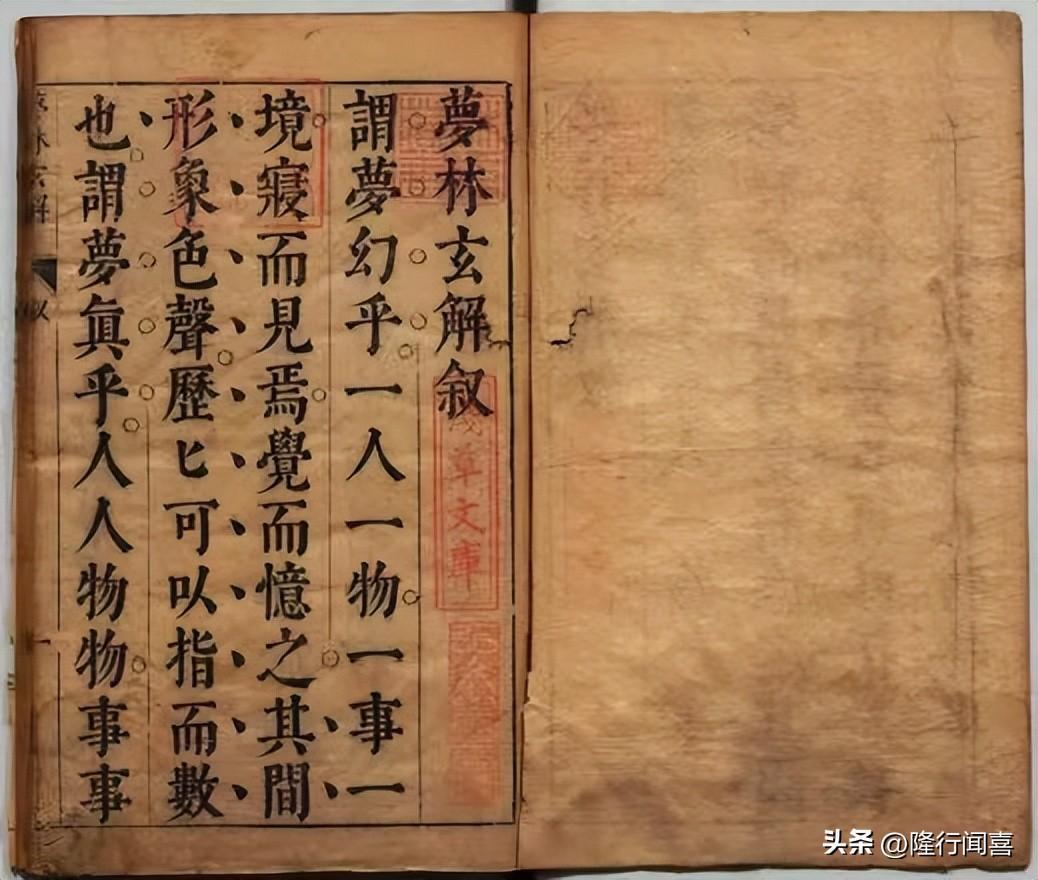 夢林玄解叙
謂夢幻乎一人一物一事一
境寢而見焉覺而憶之其間
形象色聲歷匕可以指而數
也謂夢眞乎人人物物事事
草文庫
头条 @隆行闻喜